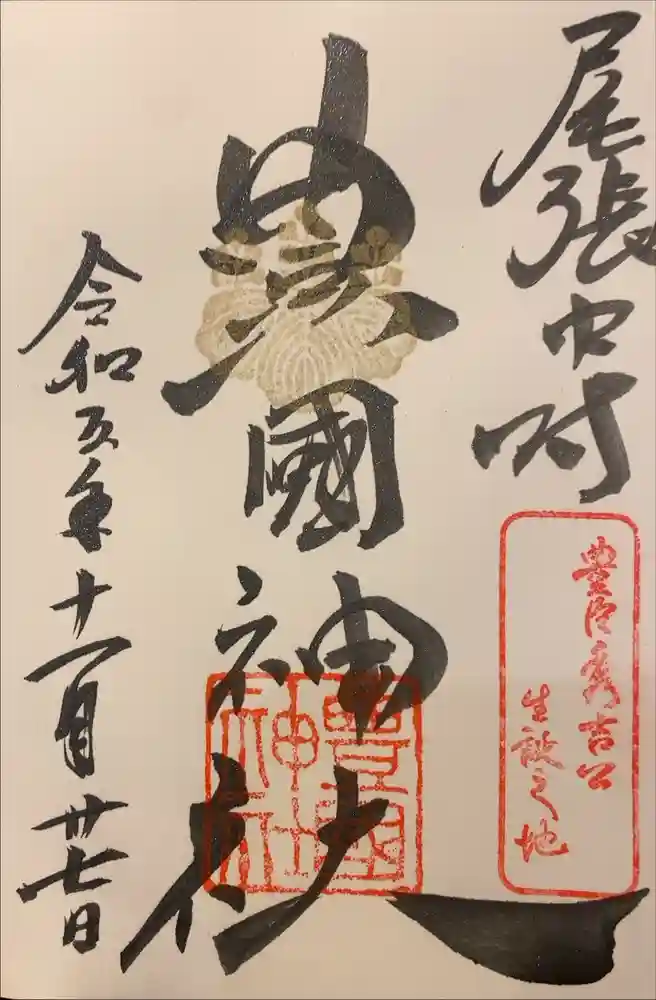 尾張中村
豊臣秀吉公
生誕之地
豊國神社
豊國
神社
令和五年十一月廿七日